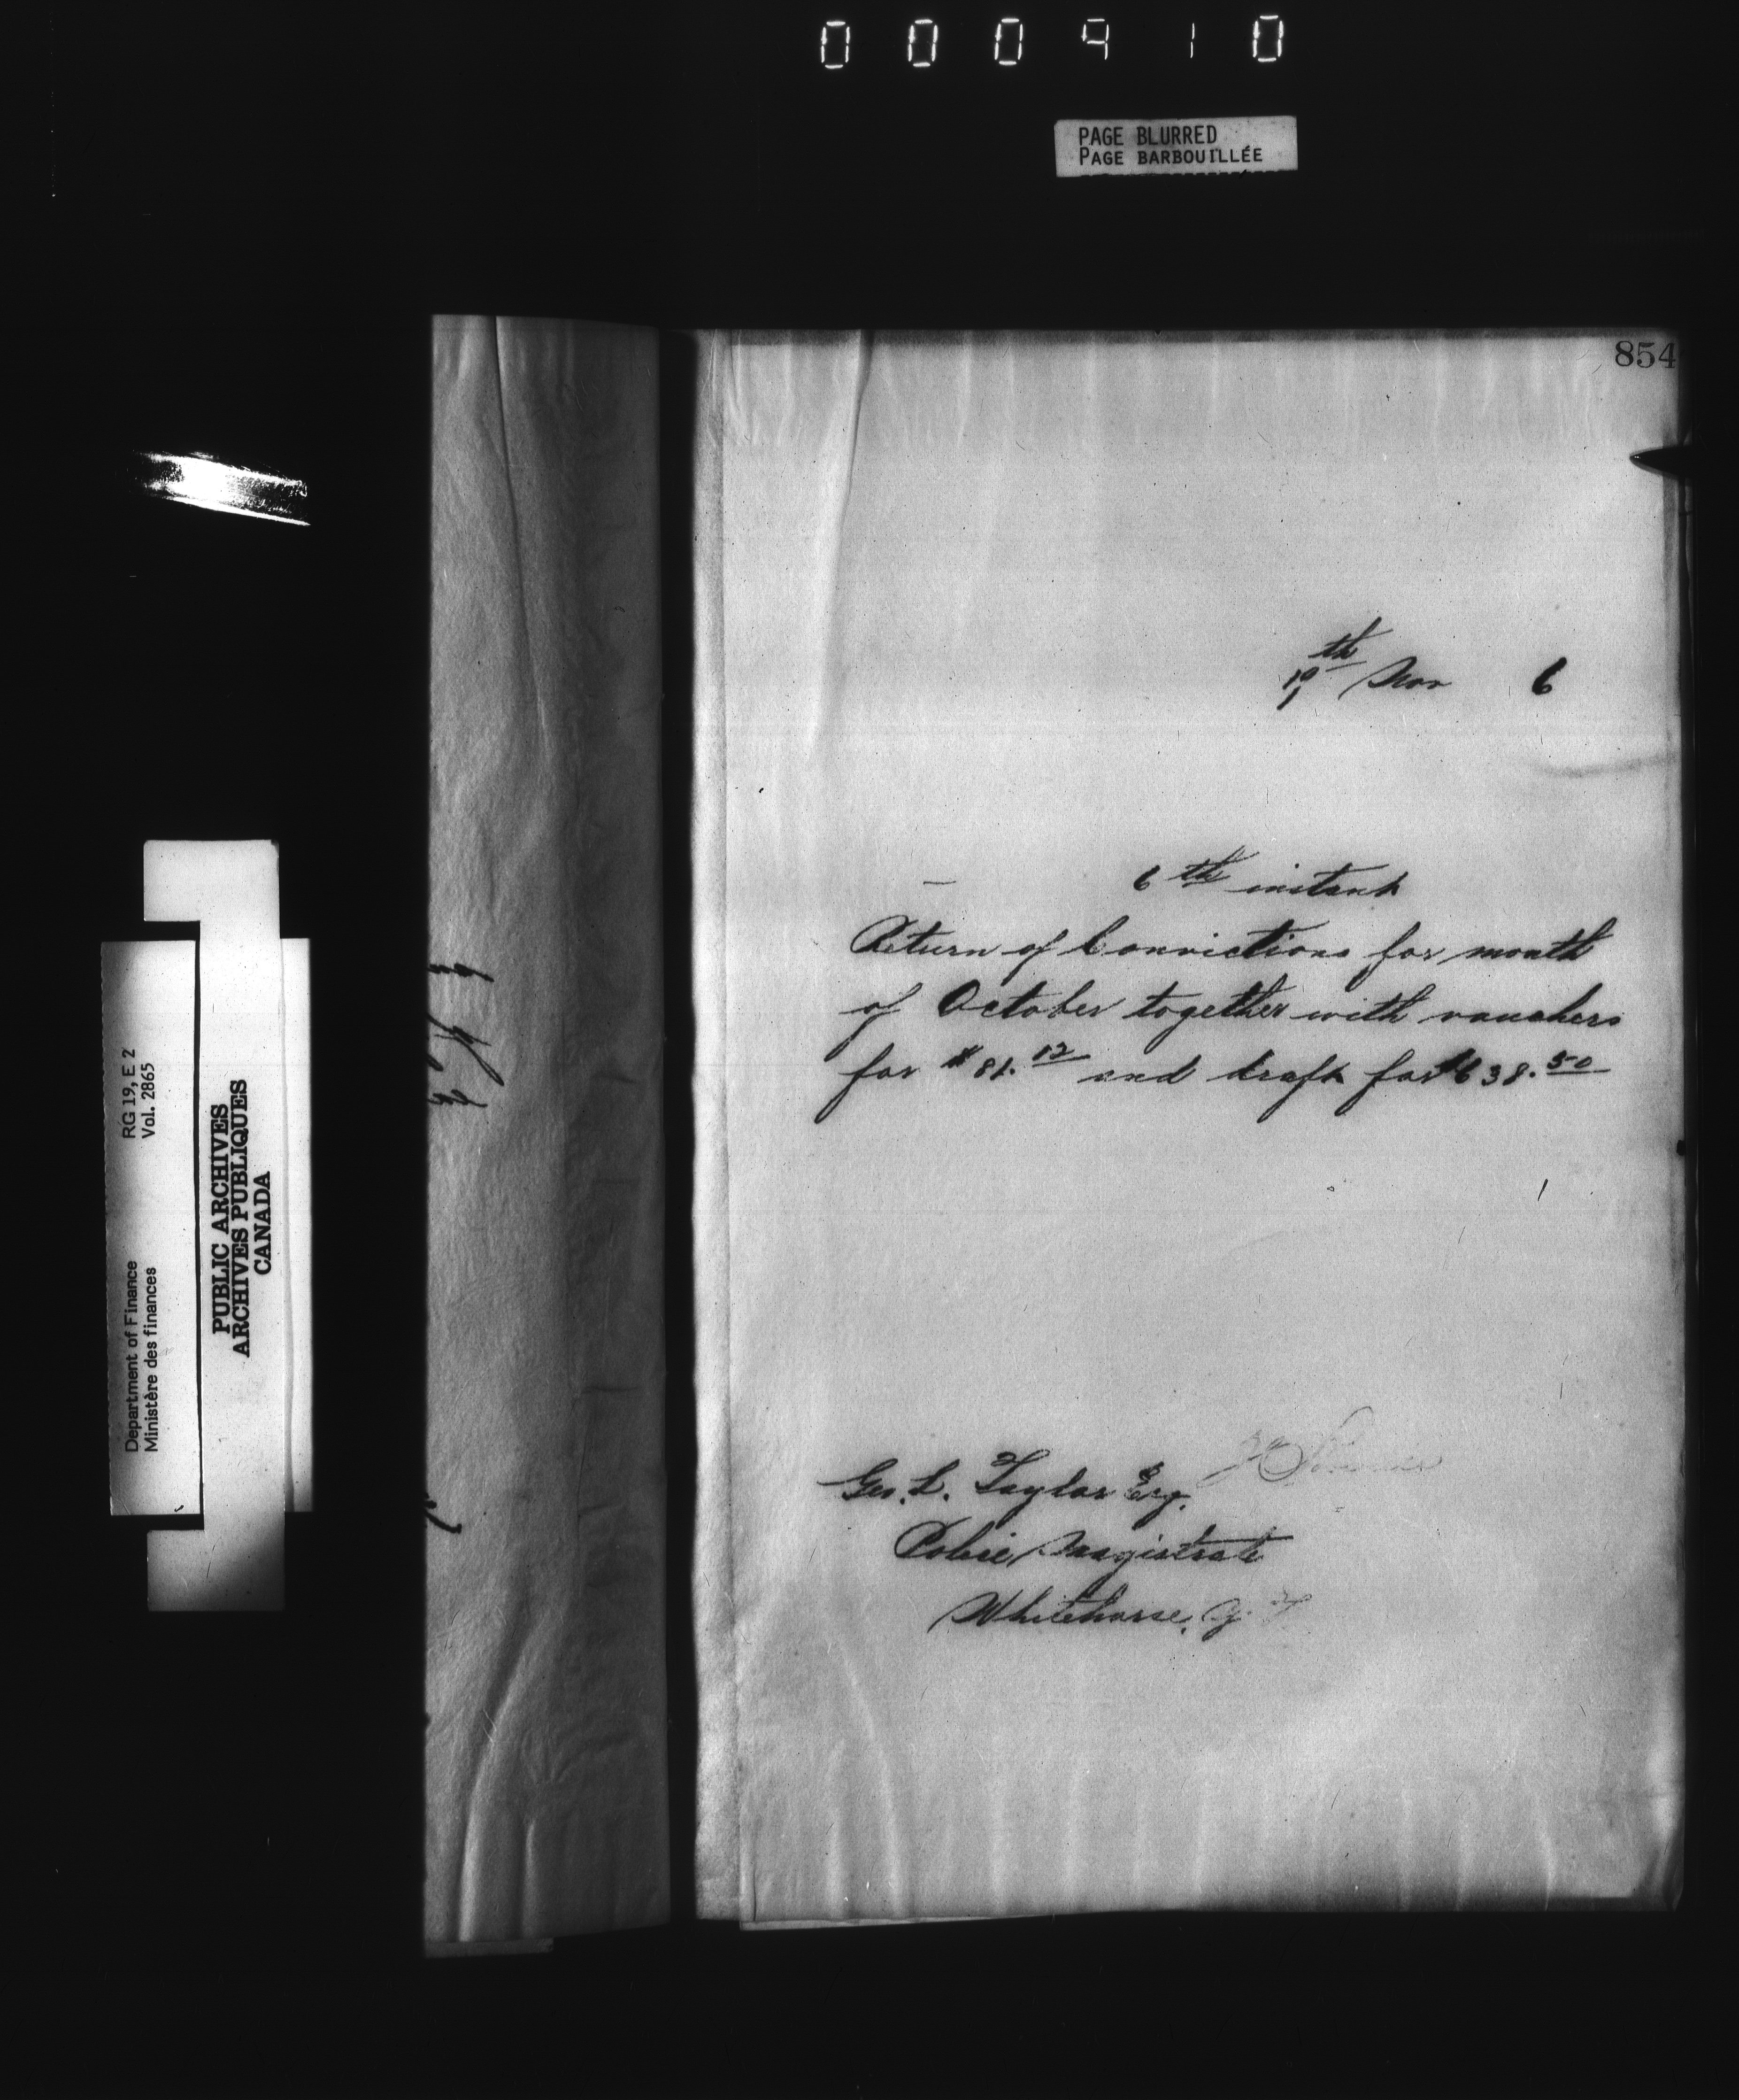 000910
PAGE BLURRED
PAGE BARBOUILLÉE
854
19th Nov 6
6th instant
Return of Convictions for month
of October together with vouchers
for $81.12 and draft for $638.50
Geo. L. Taylor Esq.
Police Magistrate
Whitehorse, Y. T.
Department of Finance RG 19, E 2
Ministère des finances Vol. 2865
PUBLIC ARCHIVES
ARCHIVES PUBLIQUES
CANADA